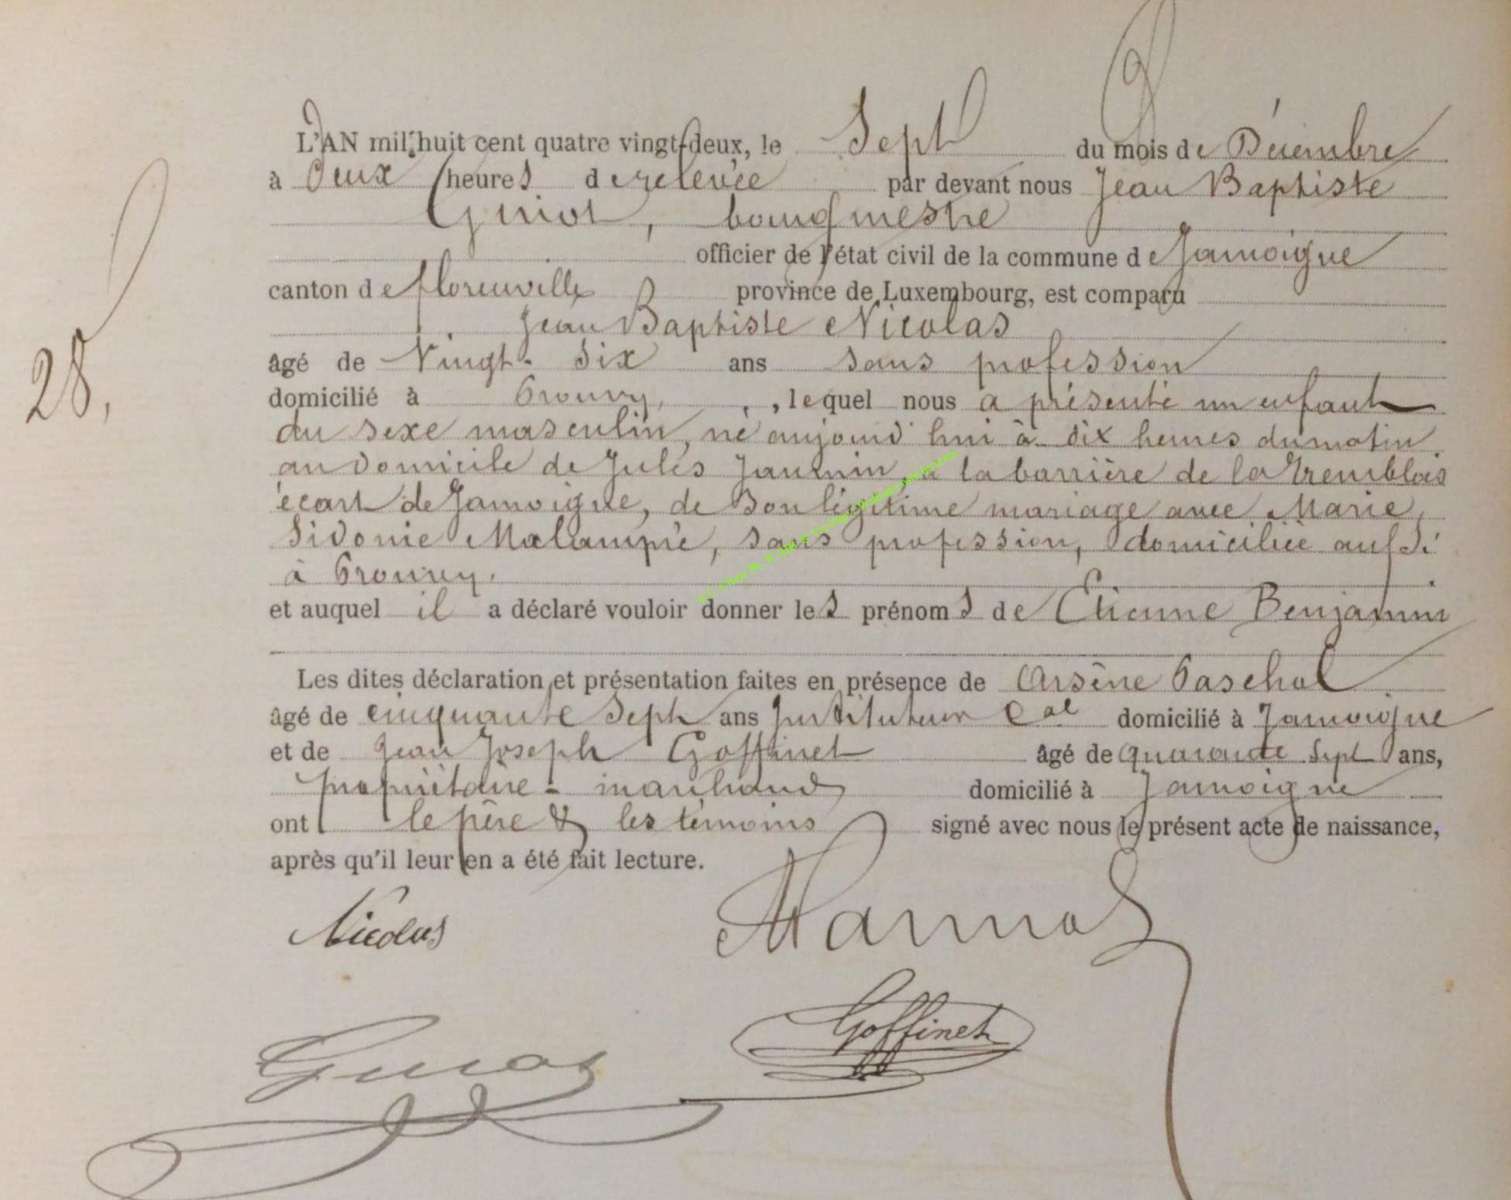 L'AN mil huit cent quatre vingt-deux, le Sept du mois de Décembre
à deux heures de relevée par devant nous Jean Baptiste
Guiot, bourgmestre
officier de l'état civil de la commune de Jamoigne
canton de florenville province de Luxembourg, est comparu
Jean Baptiste Nicolas
28,
âgé de Vingt-Six ans sans profession
domicilié à Prouvy, , lequel nous a présenté un enfant
du sexe masculin, né aujourd'hui à dix heures du matin
au domicile de Jules Jaumin, à la barrière de la Tremblois
écart de Jamoigne, de Son légitime mariage avec Marie,
Sidonie Malampré, sans profession, domiciliée aussi
à Prouvy.
et auquel il a déclaré vouloir donner les prénoms de Etienne Benjamin
Les dites déclaration et présentation faites en présence de Arsène Paschal
âgé de cinquante Sept ans Instituteur Cal domicilié à Jamoigne
et de Jean Joseph Goffinet âgé de quarante Sept ans,
propriétaire - marchand domicilié à Jamoigne
ont le père & les témoins signé avec nous le présent acte de naissance,
après qu'il leur en a été fait lecture.
Nicolas
Goffinet
Guiot